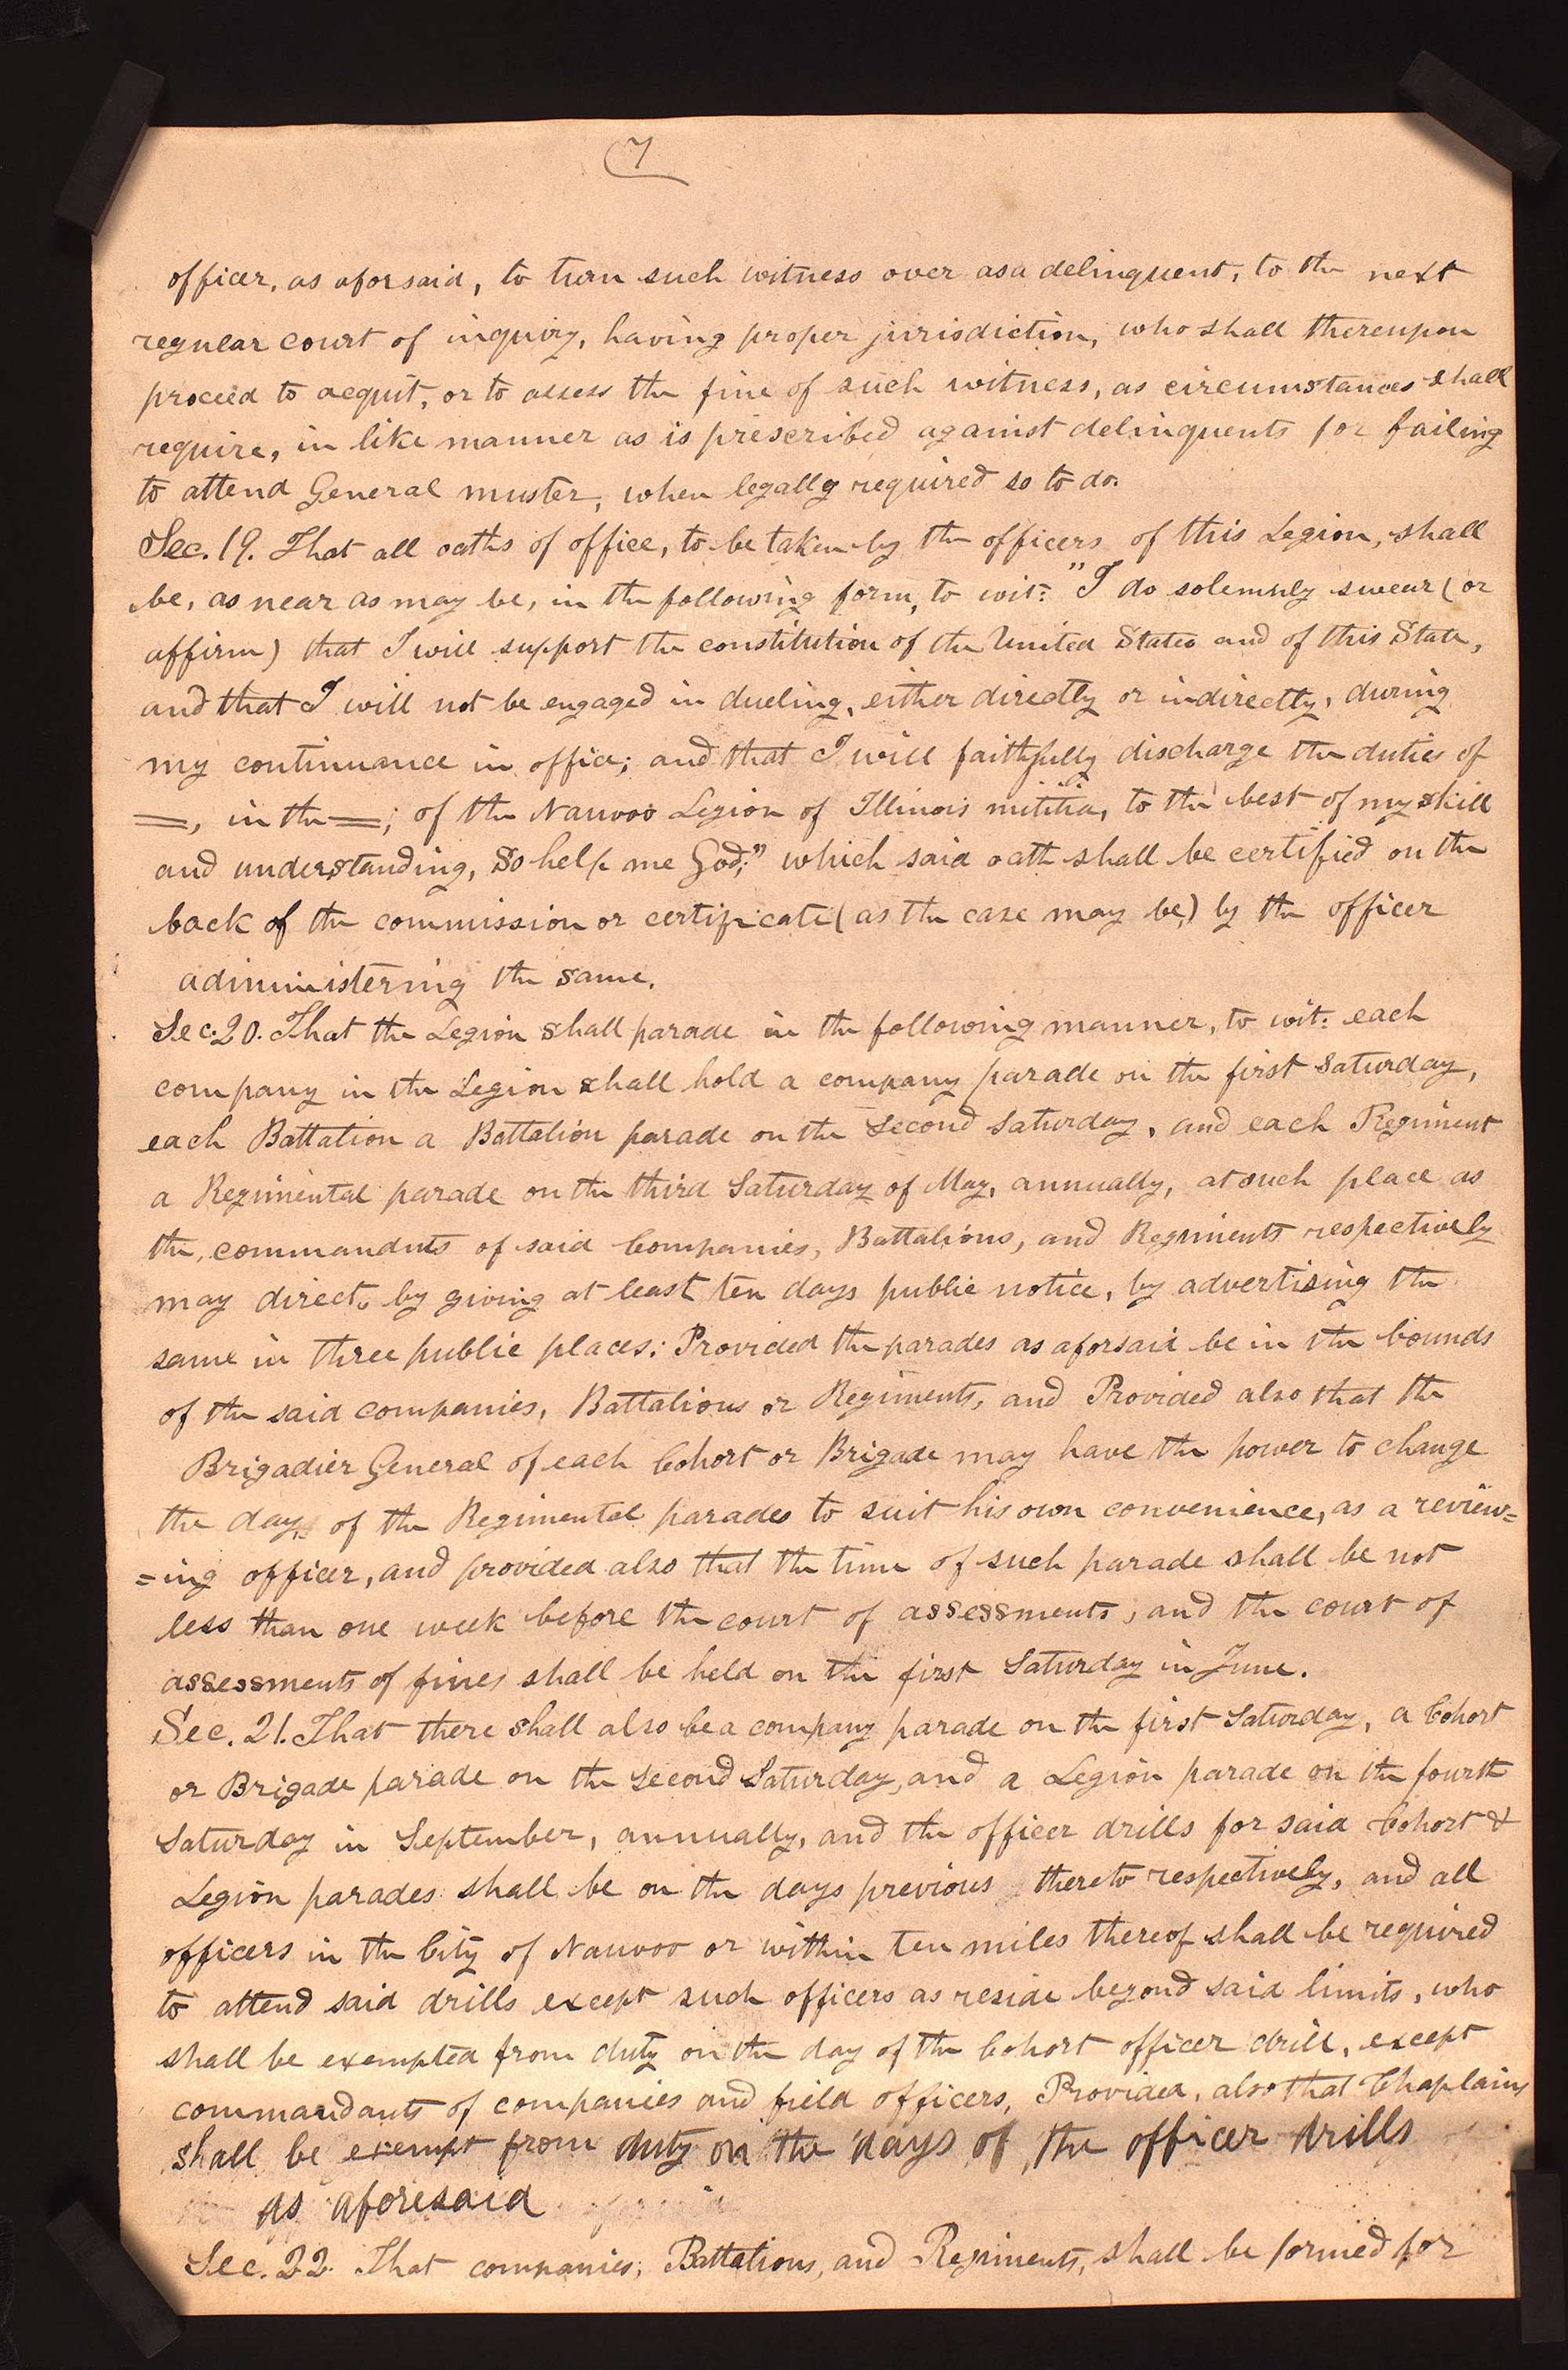 7
officer, as aforsaid, to turn such witness over as a delinquent, to the next
regular court of inquiry, having proper jurisdiction, who shall thereupon
proceed to acquit, or to assess the fine of such witness, as circumstances shall
require, in like manner as is prescribed against delinquents for failing
to attend General muster, when legally required so to do.
Sec. 19. That all oaths of office, to be taken by the officers of this Legion, shall
be, as near as may be, in the following form, to wit: "I do solemnly swear (or
affirm) that I will support the constitution of the United States and of this State,
and that I will not be engaged in dueling, either directly or indirectly, during
my continuance in office; and that I will faithfully discharge the duties of
=, in the =; of the Nauvoo Legion of Illinois militia, to the best of my skill
and understanding, So help me God;" which said oath shall be certified on the
back of the commission or certificate (as the case may be,) by the officer
administering the same.
Sec. 20. That the Legion shall parade in the following manner, to wit: each
company in the Legion shall hold a company parade on the first Saturday,
each Battalion a Battalion parade on the Second Saturday, and each Regiment
a Regimental parade on the third Saturday of May, annually, at such place as
the commandnts of said Companies, Battalions, and Regiments respectively
may direct, by giving at least ten days public notice, by advertising the
same in three public places: Provided the parades as aforsaid be in the bounds
of the said companies, Battalions or Regiments, and Provided also that the
Brigadier General of each Cohort or Brigade may have the power to change
the day, of the Regimental parades to suit his own convenience, as a review=
=ing officer, and provided also that the time of such parade shall be not
less than one week before the court of assessments, and the court of
assessments of fines shall be held on the first Saturday in June.
Sec. 21. That there shall also be a company parade on the first Saturday, a Cohort
or Brigade parade on the Second Saturday, and a Legion parade on the fourth
Saturday in September, annually, and the officer drills for said Cohort &
Legion parades shall be on the days previous thereto respectively, and all
officers in the City of Nauvoo or within ten miles thereof shall be required
to attend said drills except such officers as reside beyond said limits, who
shall be exempted from duty on the day of the Cohort officer drill, except
commandants of companies and field officers, Provided, also that Chaplains
shall be exempt from duty on the days of the officer drills
as aforesaid
Sec. 22. That companies, Battalions, and Regiments, shall be formed for